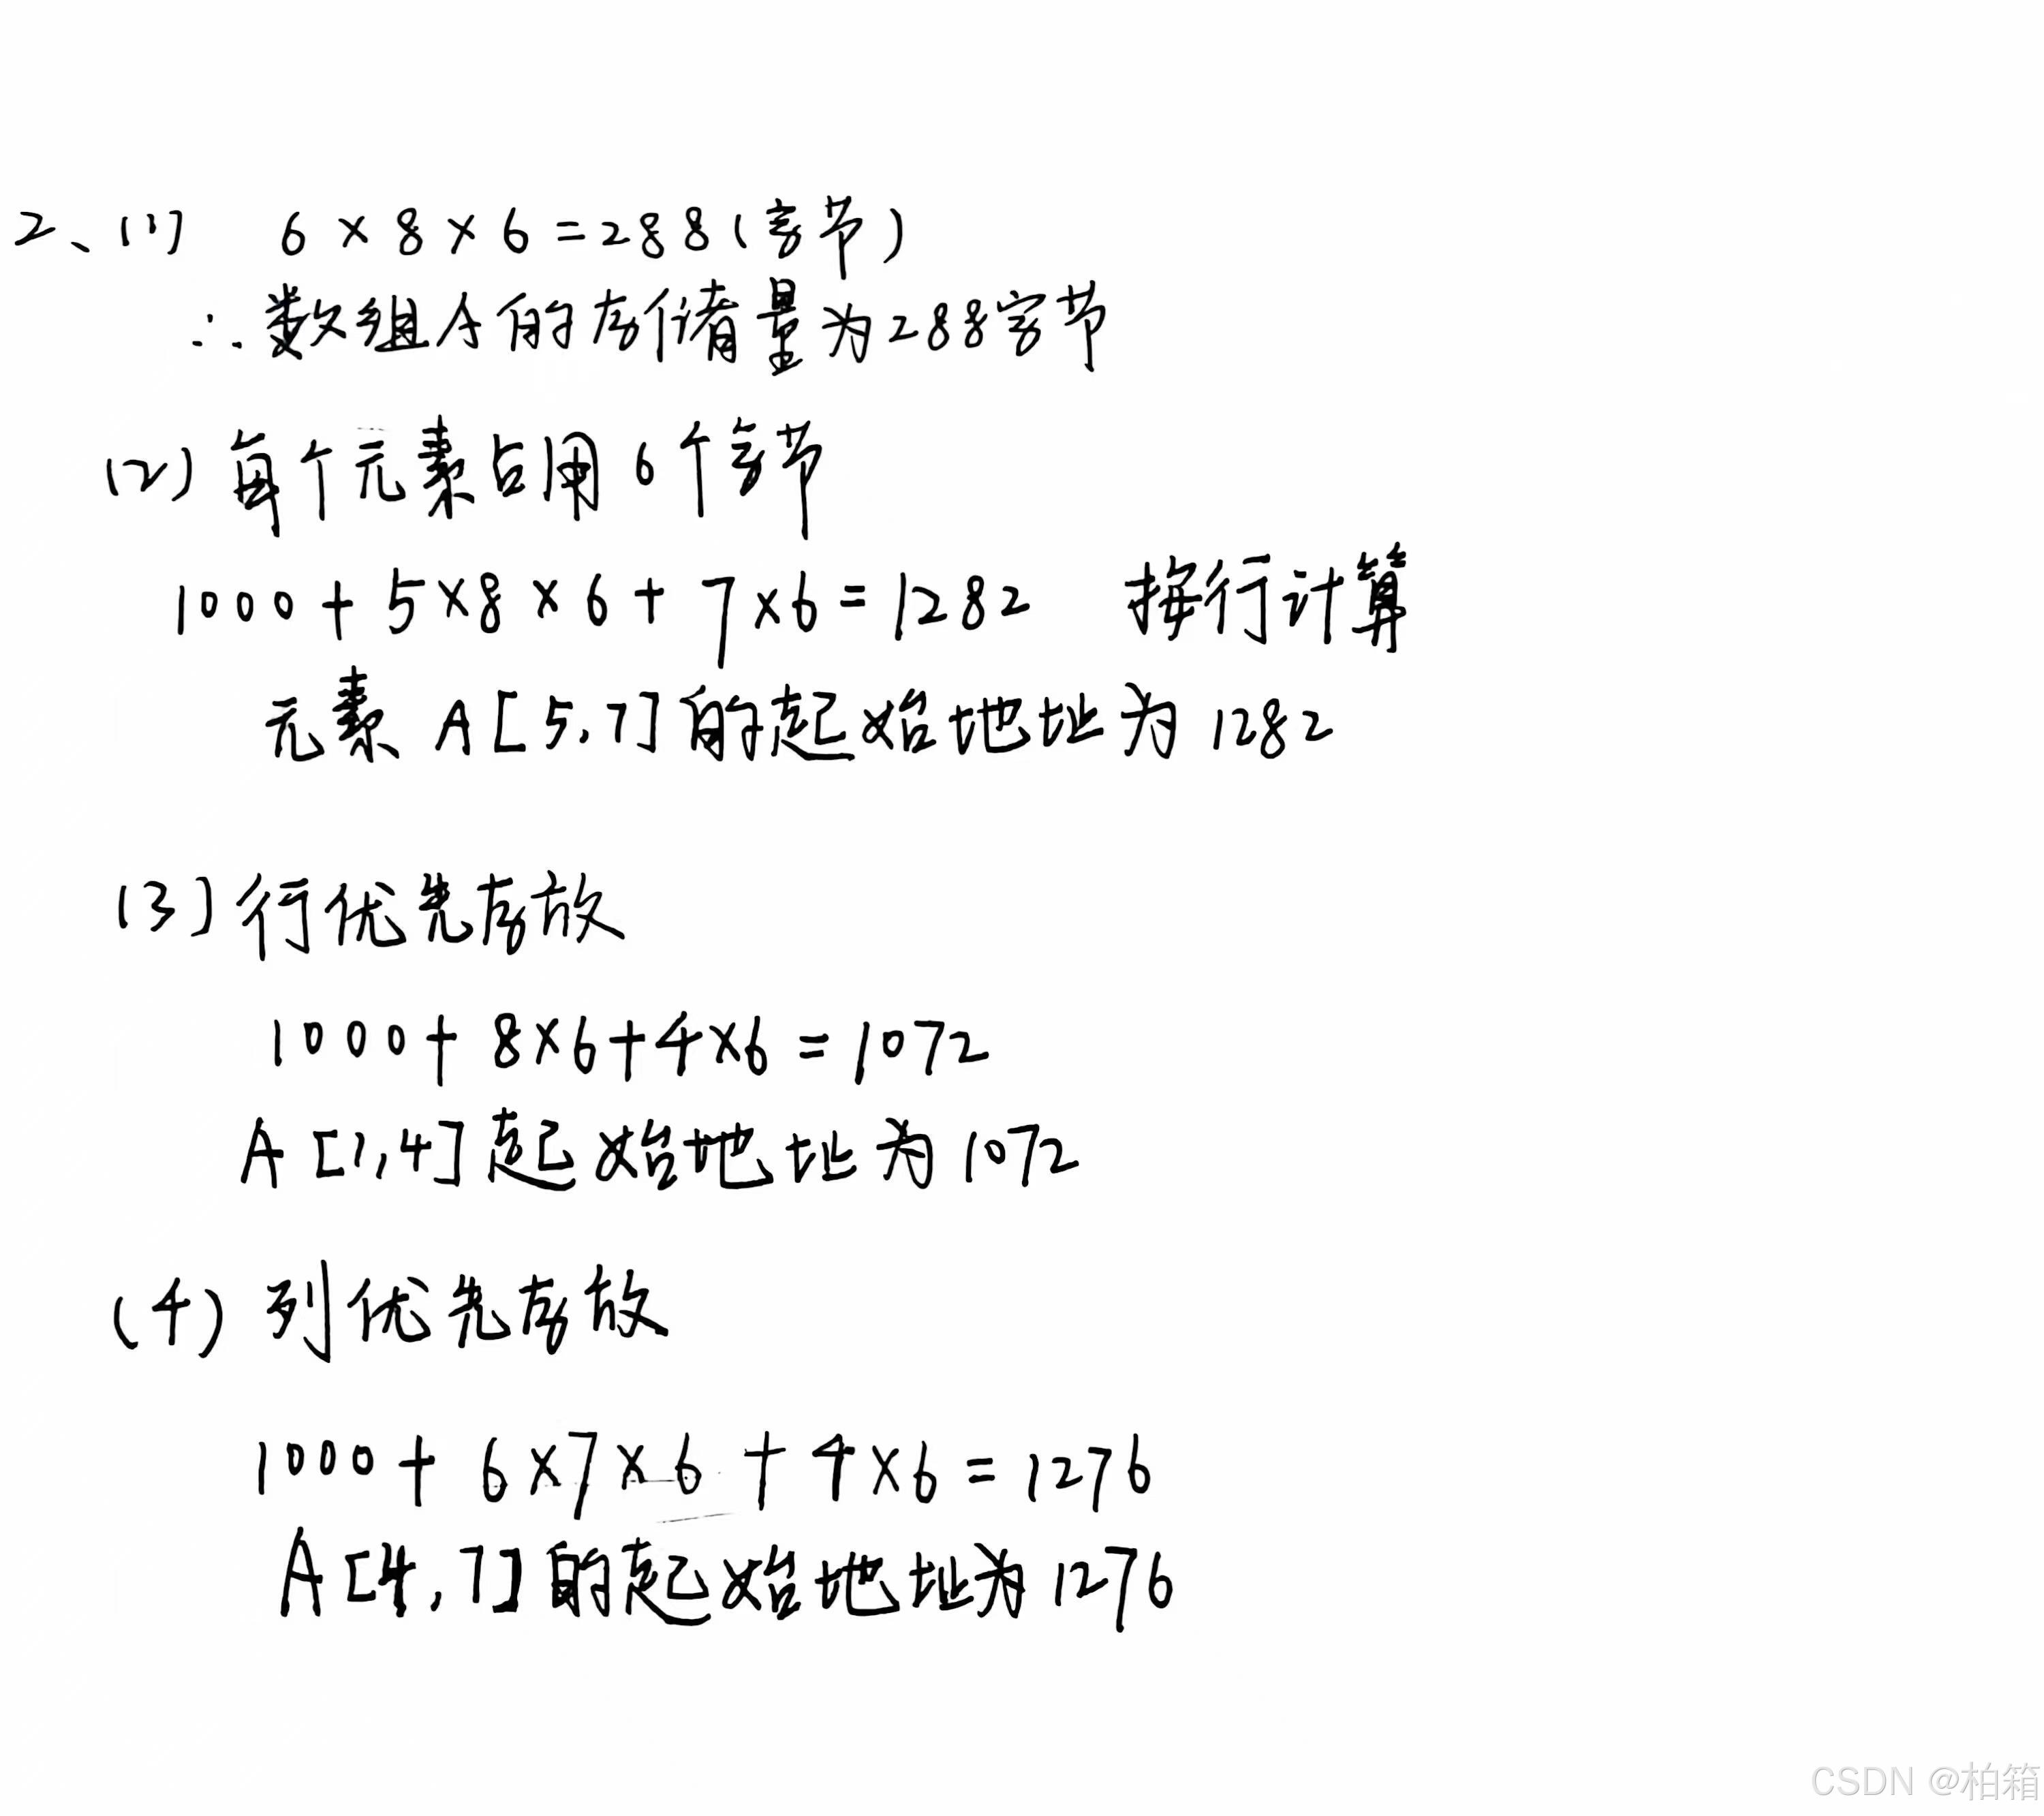 2、(1) 6×8×6=288(字节)
∴数组A的存储量为288字节
(2) 每个元素占用6个字节
1000+5×8×6+7×6=1282 按行计算
元素 A[5,7]的起始地址为1282
(3] 行优先存放
1000+8×6+4×6=1072
A[1,4]起始地址为1072
(4) 列优先存放
1000+6×7×6+4×6=1276
A[4,7]的起始地址为1276
CSDN @柏箱